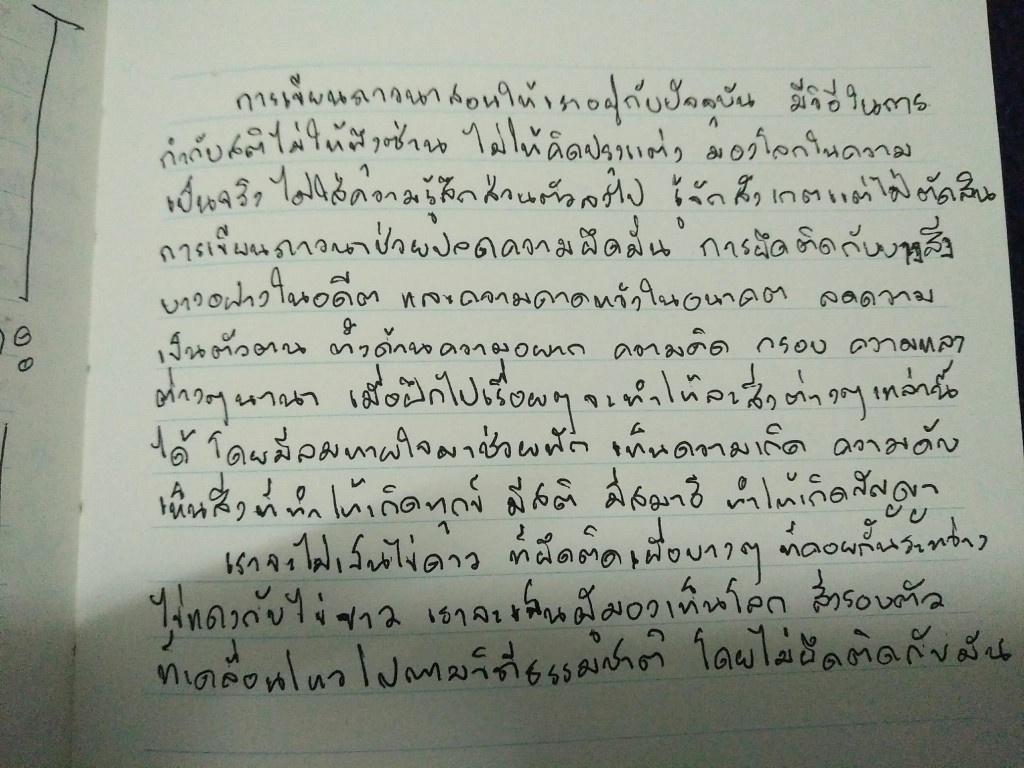 การเขียนภาวนาสอนให้เราอยู่กับปัจจุบัน มีวิธีในการ
กำกับสติไม่ให้ฟุ้งซ่าน ไม่ให้คิดปรุงแต่ง มองโลกในความ
เป็นจริง ไม่ใส่ความรู้สึกส่วนตัวลงไป รู้จักสังเกตแต่ไม่ตัดสิน
การเขียนภาวนาช่วยปลดความยึดมั่น การยึดติดกับบางสิ่ง
บางอย่างในอดีต และความคาดหวังในอนาคต ลดความ
เป็นตัวตน ทั้งด้านความอยาก ความคิด กรอบ ความ
ต่างๆนานา เมื่อฝึกไปเรื่อยๆจะทำให้ละสิ่งต่างๆเหล่านั้น
ได้ โดยมีลมหายใจมาช่วยพัก เห็นความเกิด ความดับ
เห็นสิ่งที่ทำให้เกิดทุกข์ มีสติ มีสมาธิ ทำให้เกิดปัญญา
เราจะไม่เป็นไข่ดาว ที่ยึดติดเยื่อบางๆ ที่คอยกั้นระหว่าง
ไข่แดงกับไข่ขาว เราจะเป็นผู้มองเห็นโลก สิ่งรอบตัว
ที่เคลื่อนไหวไปตามวิถีธรรมชาติ โดยไม่ยึดติดกับมัน